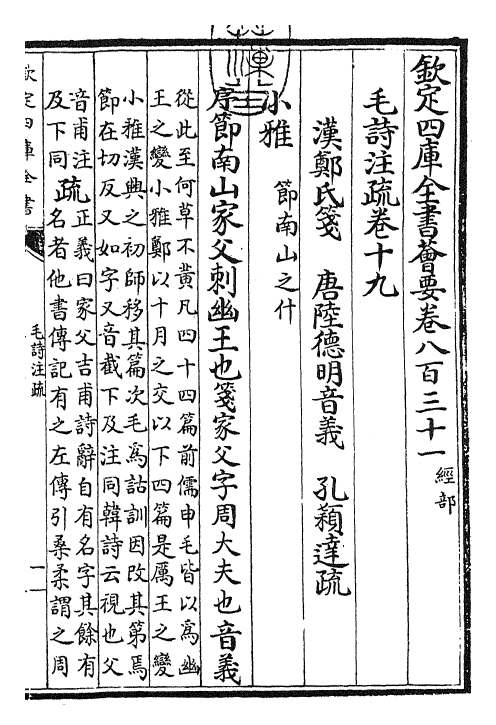 欽定四庫全書薈要卷八百三十一 經部
毛詩注疏卷十九
漢鄭氏箋 唐陸德明音義 孔穎達疏
小雅 節南山之什
序節南山家父刺幽王也箋家父字周大夫也音義
從此至何草不黄凡四十四篇前儒申毛皆以爲幽
王之變小雅鄭以十月之交以下四篇是厲王之變
小雅漢興之初師移其篇次毛爲詁訓因改其第焉
節在切反又如字又音截下及注同韓詩云視也父
音甫注
及下同
疏
正義曰家父吉甫詩辭自有名字其餘有
名者他書傳記有之左傳引桑柔謂之周
欽定四庫全書
毛詩注疏
一